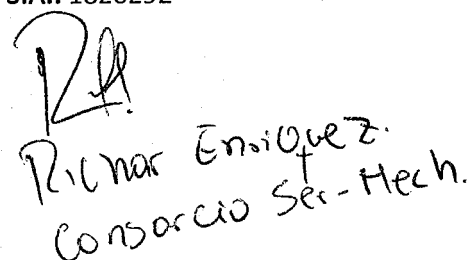 1820292
Richar Enriquez.
Consorcio Ser-Mech.